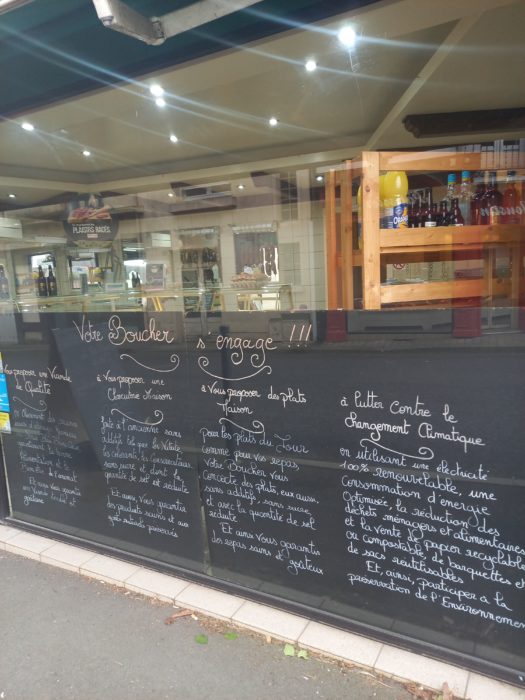 PLAISIRS RACÉS
Votre Boucher s'engage !!!
à Vous proposer une Viande
de Qualité
à Vous proposer une
Charcuterie Maison
faite à l'ancienne sans
additifs tels que les Nitrites
les colorants, les conservateurs
sans sucre et dont la
quantité de sel est réduite
Et ainsi Vous garantir
des produits sains et aux
goûts naturels préservés
à Vous proposer des plats
Maison
pour les plats du Jour
comme pour vos repas,
Votre Boucher Vous
Concocte des plats, eux aussi,
sans additifs, sans sucre
et avec la quantité de sel
réduite
Et ainsi Vous garantir
des repas sains et goûteux
à Lutter Contre le
Changement Climatique
en utilisant une électricité
100% Renouvelable, une
Consommation d'énergie
Optimisée, la réduction des
déchets ménagers et alimentaires
et la vente de papier recyclable
ou compostable, de barquettes et
de sacs réutilisables
Et, ainsi, participer à la
préservation de l'Environnement